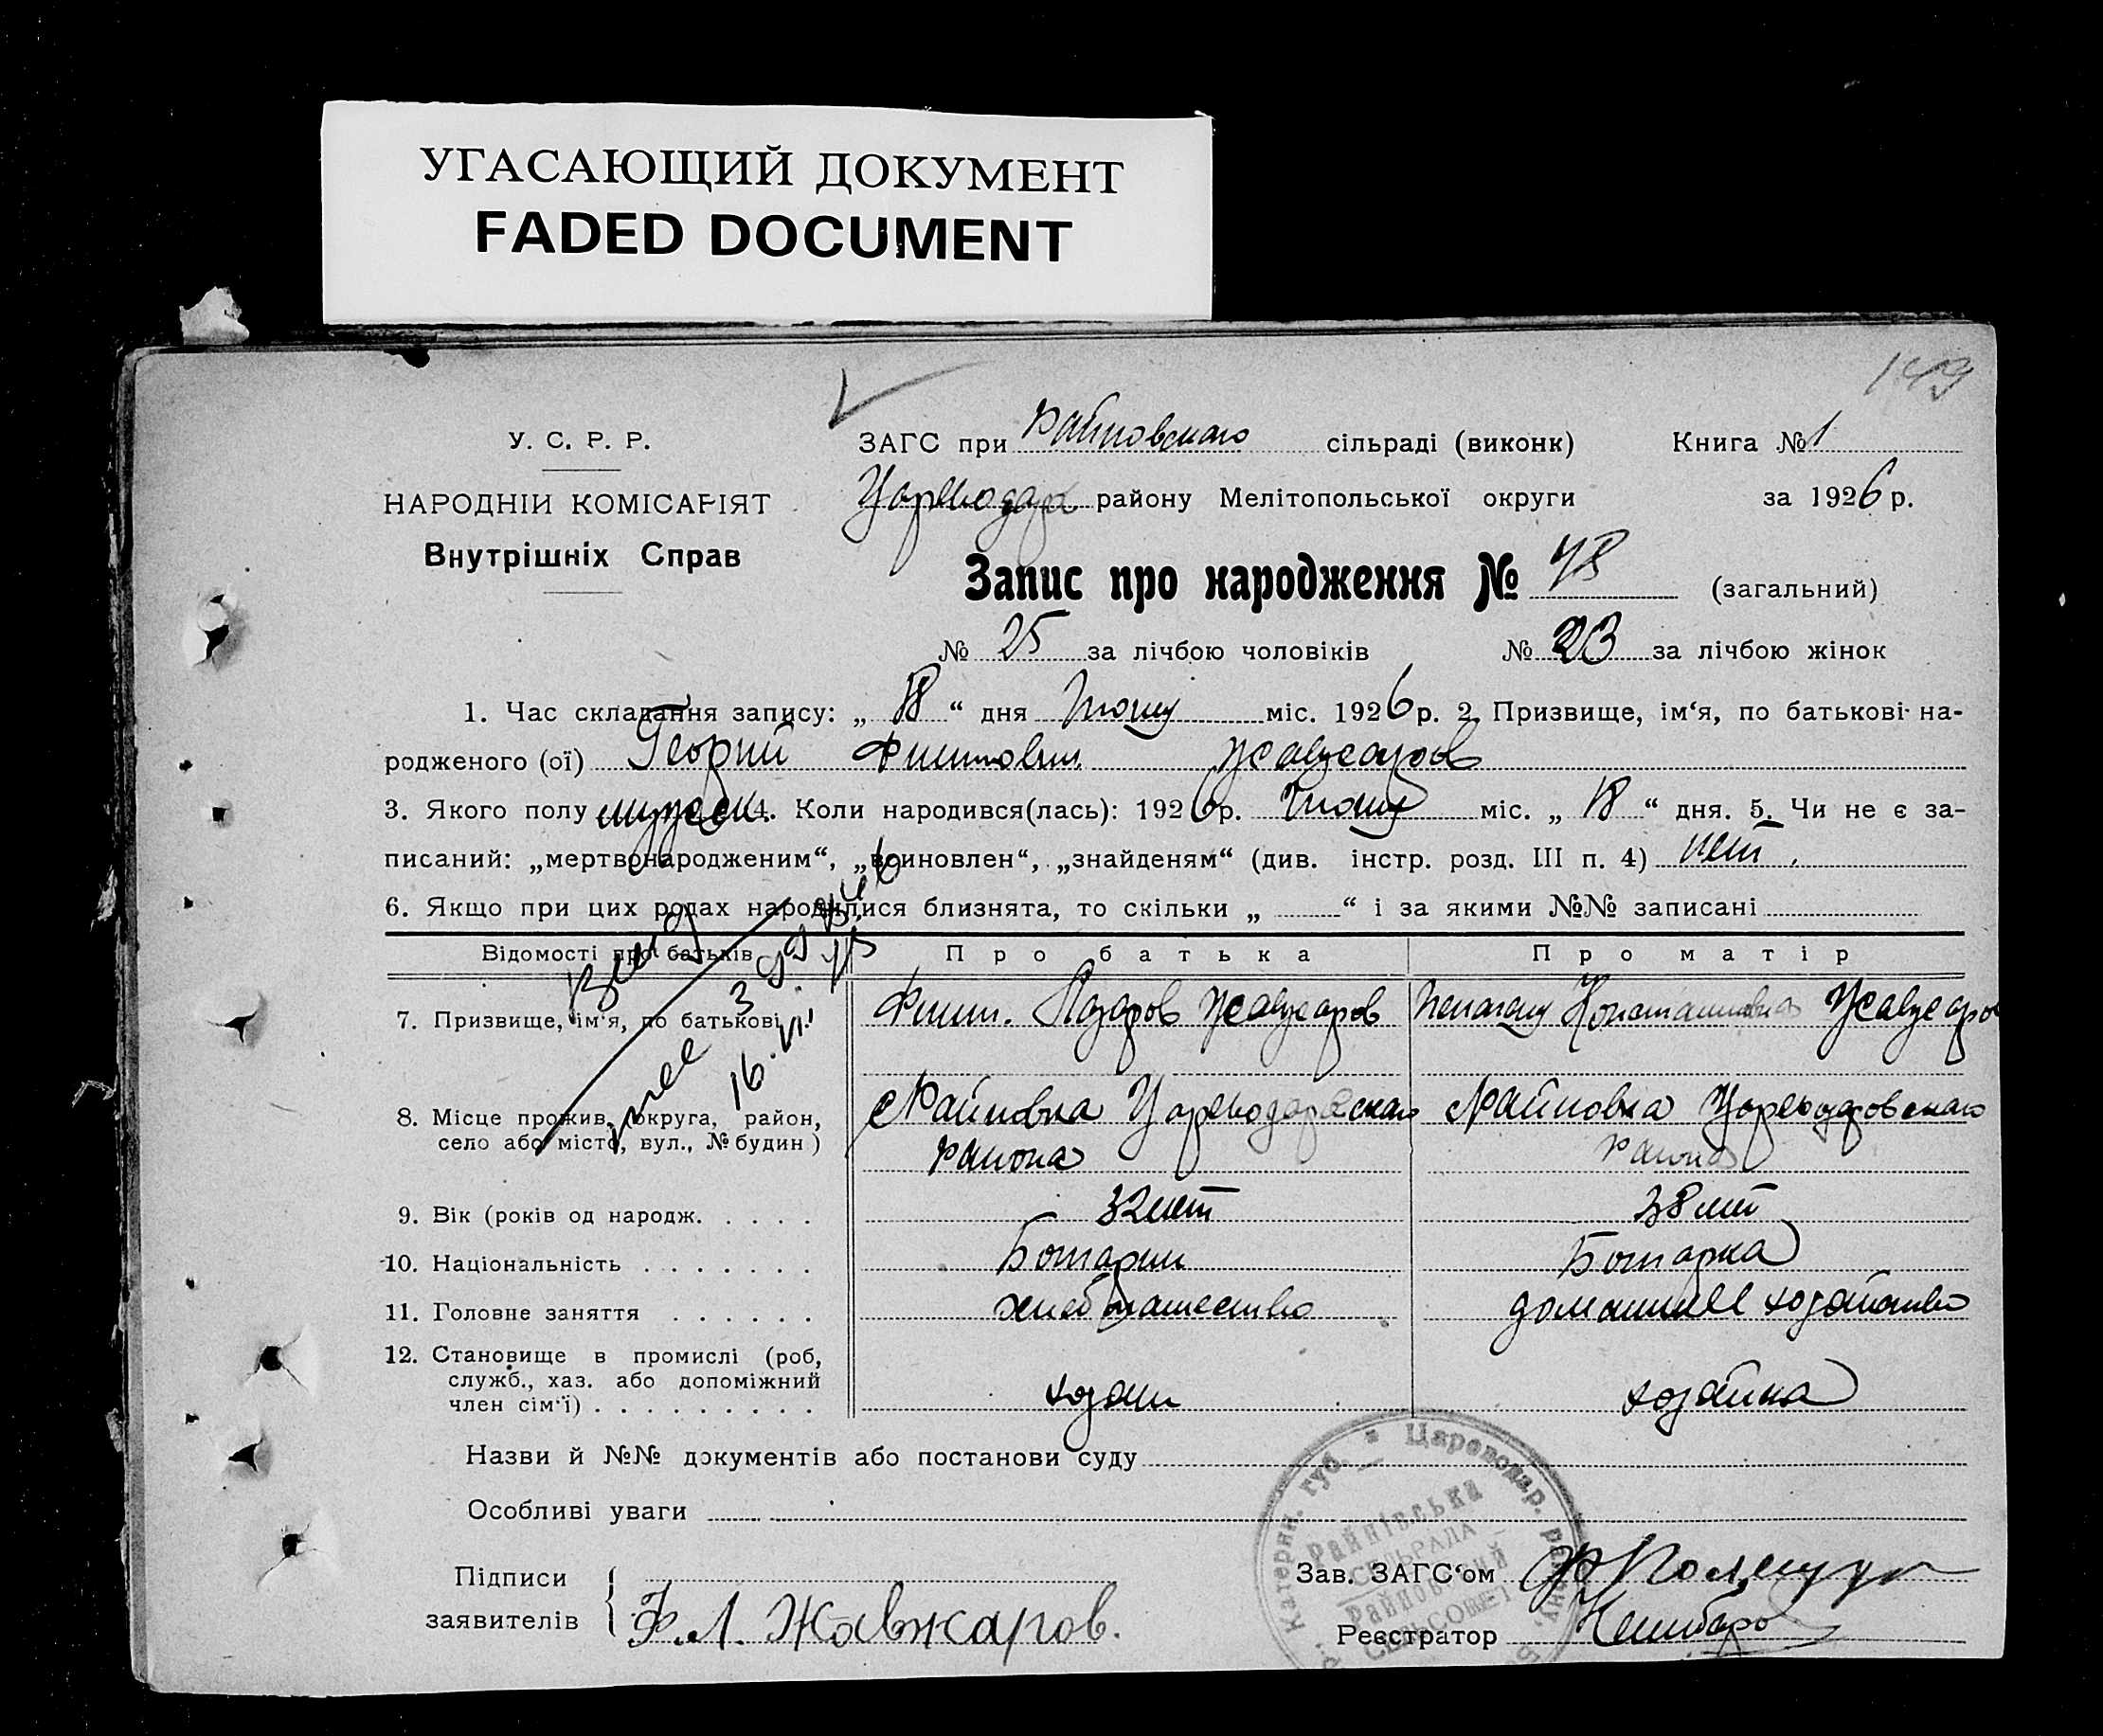 УГАСАЮЩИЙ ДОКУМЕНТ
FADED DOCUMENT
149
У. С. Р. Р.
НАРОДНІЙ КОМІСАРІЯТ
Внутрішніх Справ
ЗАГС при Райновскаго сільраді (виконк) Книга № 1
району Мелітопольської округи за 1926 р.
Запис про народження № 48 (загальний)
№ 25 за лічбою чоловіків № 23 за лічбою жінок
1. Час складання запису: „ 18 “ дня міс. 1926 р. 2. Призвище, ім‘я, по батькові на-
родженого (ої) Георгий Филипович Жавжаров
3. Якого полу мужск. 4. Коли народився(лась): 1926 р. міс. „ 18 “ дня. 5. Чи не є за-
писаний: „мертвонародженим“, „всиновлен“, „знайденям“ (див. інстр. розд. III п. 4) нет.
6. Якщо при цих родах народилися близнята, то скільки „ “ і за якими №№ записані
Відомості про батьків Про батька Про матір
7. Призвище, ім‘я, по батькові Филип. Лазаров Жавжаров Жавжаров
8. Місце прожив. (округа, район, село або місто, вул., № будин) с Райновка Цареводаровскаго района с Райновка Цареводаровскаго района
9. Вік (років од народж. 32 лет 38 лет
10. Національність Болгарин Болгарка
11. Головне заняття хлебопашество домашнее хозайство
12. Становище в промислі (роб, служб., хаз. або допоміжний член сім‘ї) хозаин хозайка
Назви й №№ документів або постанови суду
Особливі уваги
Підписи
заявителів Ф. Л. Жавжаров.
Зав. ЗАГС‘ом
Реєстратор
Катерин. губ. * Цареводар. району
Райнівська
СІЛЬРАДА
Райновский
СЕЛЬСОВЕТ